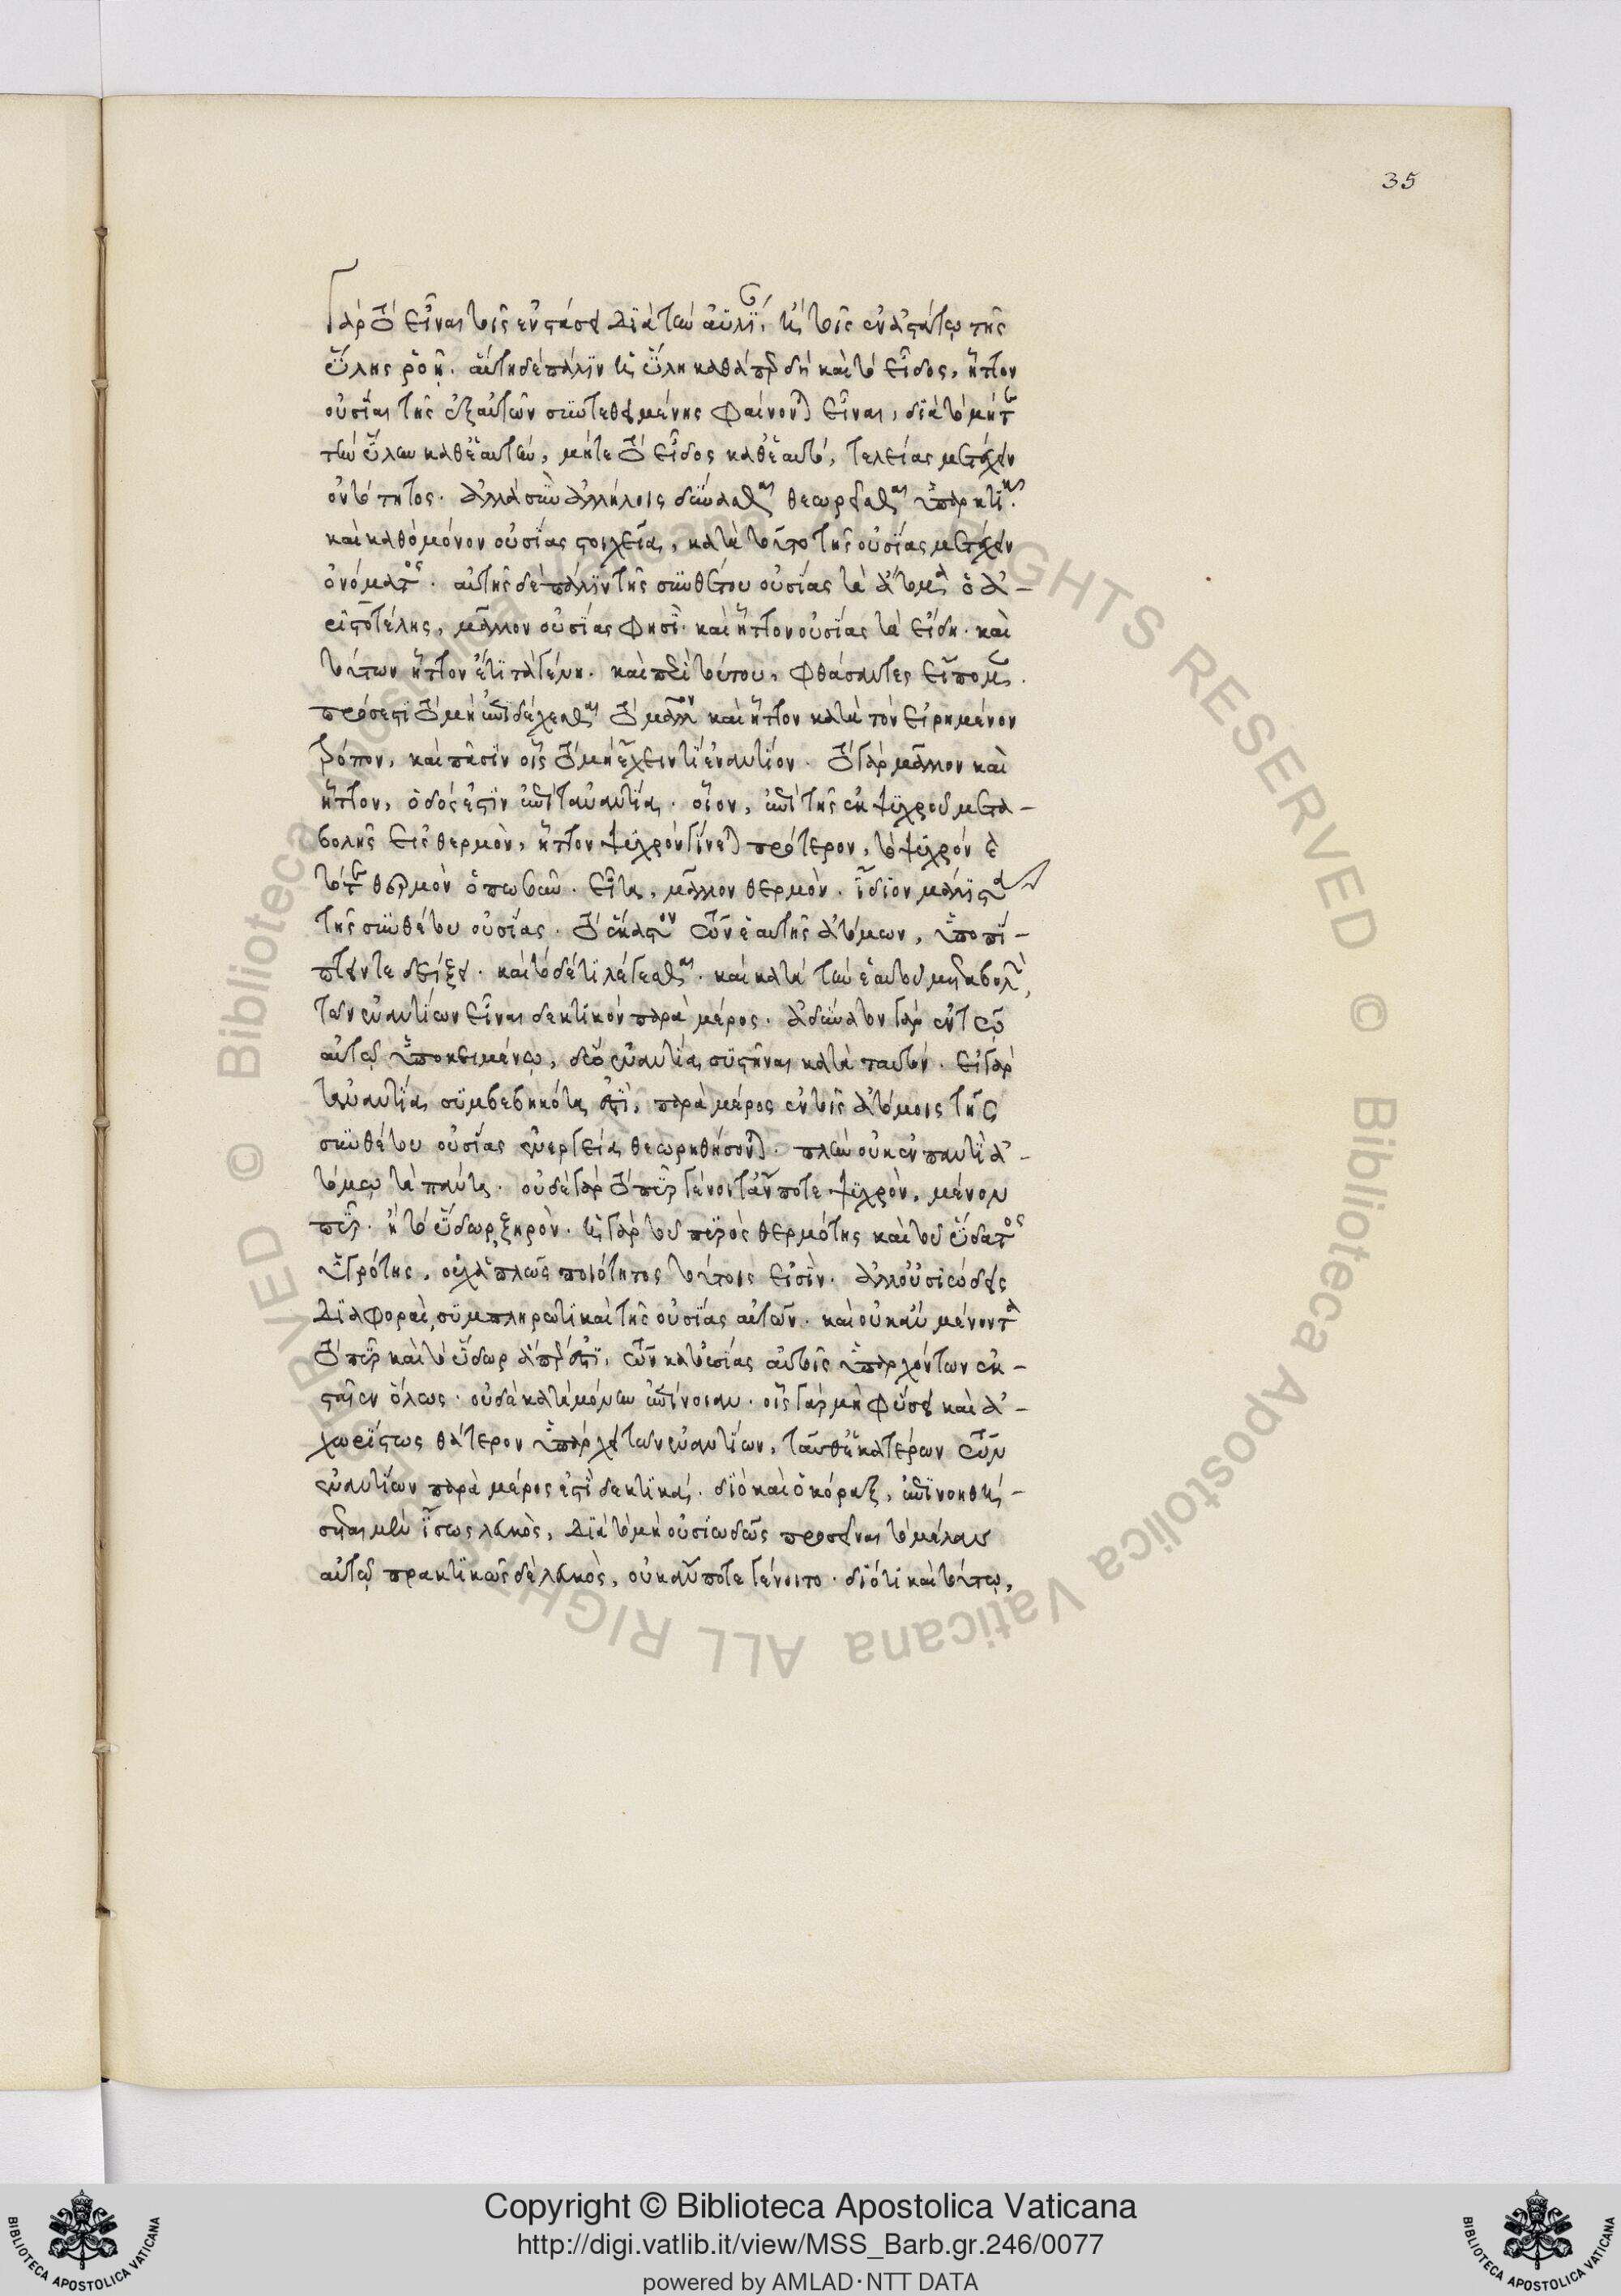 35
γὰρ τὸ εἶναι τοῖς ἐνστάσει διὰ τὴν ἀϋλί, καὶ τοῖς ἐν ἀστάτῳ τῆς
ὕλης ῥοῇ. αὕτη δὲ πάλιν ἡ ὕλη καθάπερ δὴ καὶ τὸ εἶδος, ἧττον
οὐσίαι τῆς ἐξ αὐτῶν συντεθειμένης φαίνονται εἶναι, διὰ τὸ μήτε
τὴν ὕλην καθ' ἑαυτὴν, μήτε τὸ εἶδος καθ' ἑαυτό, τελείας μετέχειν
ὀντότητος. ἀλλὰ σὺν ἀλλήλοις δύνασθαι θεωρεῖσθαι ὑπαρκτι.
καὶ καθὸ μόνον οὐσίας στοιχεῖα, κατὰ τοῦτο τῆς οὐσίας μετέχειν
ὀνόματος. αὐτῆς δὲ πάλιν τῆς συνθέτου οὐσίας τὰ ἄτομα ὁ ἀ-
ριστοτέλης, μᾶλλον οὐσίας φησὶ· καὶ ἧττον οὐσίας τὰ εἴδη. καὶ
τούτων ἧττον ἔτι τὰ γένη. καὶ περὶ τούτου, φθάσαντες εἴπομεν.
πρόσεστι τὸ μὴ ἐπιδέχεσθαι τὸ μᾶλλον καὶ ἧττον κατὰ τὸν εἰρημένον
τρόπον, καὶ πᾶσιν οἷς τὸ μὴ ἔχειν τι ἐναντίον. τὸ γὰρ μᾶλλον καὶ
ἧττον, ὁδός ἐστιν ἐπὶ τἀναντία. οἷον, ἐπὶ τῆς ἐκ ψυχροῦ μετα-
βολῆς εἰς θερμὸν, ἧττον ψυχρὸν γίνεται πρότερον, τὸ ψυχρόν
τότε θερμὸν ὁπωσοῦν. εἶτα, μᾶλλον θερμὸν. ἴδιον μάλιστα
τῆς συνθέτου οὐσίας. τὸ ἕκαστον τῶν ἑαυτῆς ἀτόμων, ὑποπί-
πτειν τε δείξει. καὶ τόδέ τι λέγεσθαι. καὶ κατὰ τὴν ἑαυτοῦ μεταβολὴν,
τῶν ἐναντίων εἶναι δεκτικὸν παρὰ μέρος. ἀδύνατον γὰρ ἐν τῷ
αὐτῷ ὑποκειμένῳ, δύο ἐναντία συστῆναι κατὰ ταυτόν. εἰ γὰρ
τἀναντία συμβεβηκότα ἐστὶ, παρὰ μέρος ἐν τοῖς ἀτόμοις τῆς
συνθέτου οὐσίας ἐνεργείᾳ θεωρηθήσονται. πλὴν οὐκ ἐν παντὶ ἀ-
τόμῳ τὰ πάντα. οὐδὲ γὰρ τὸ πῦρ γένοιτ' ἄν ποτε ψυχρὸν, μένον
πῦρ. ἢ τὸ ὕδωρ, ξηρὸν. ἡ γὰρ τοῦ πυρὸς θερμότης καὶ τοῦ ὕδατος
ὑγρότης, οὐχ ἁπλῶς ποιότητος τούτοις εἰσὶν. ἀλλ' οὐσιώδεις
διαφοραὶ, συμπληρωτικαὶ τῆς οὐσίας αὐτῶν. καὶ οὐκ ἂν μένοντα
τὸ πῦρ καὶ τὸ ὕδωρ ἅπερ ἐστὶ, τῶν κατ' οὐσίας αὐτοῖς ὑπαρχόντων ἐκ-
σταῖεν ὅλως. οὐδὲ κατὰ μόνην ἐπίνοιαν. οἷς γὰρ μὴ φύσει καὶ ἀ-
χωρίστως θάτερον ὑπάρχει τῶν ἐναντίων, ταῦθ' ἑκατέρων τῶν
ἐναντίων παρὰ μέρος ἐστὶ δεκτικά. διὸ καὶ ὁ κόραξ, ἐπινοηθή-
σεται μὲν ἴσως λευκὸς, διὰ τὸ μὴ οὐσιωδῶς προσεῖναι τὸ μέλαν
αὐτῷ πρακτικῶς δὲ λευκὸς, οὐκ ἄν ποτε γένοιτο. διότι καὶ τούτῳ,
Copyright © Biblioteca Apostolica Vaticana
http://digi.vatlib.it/view/MSS_Barb.gr.246/0077
powered by AMLAD·NTT DATA